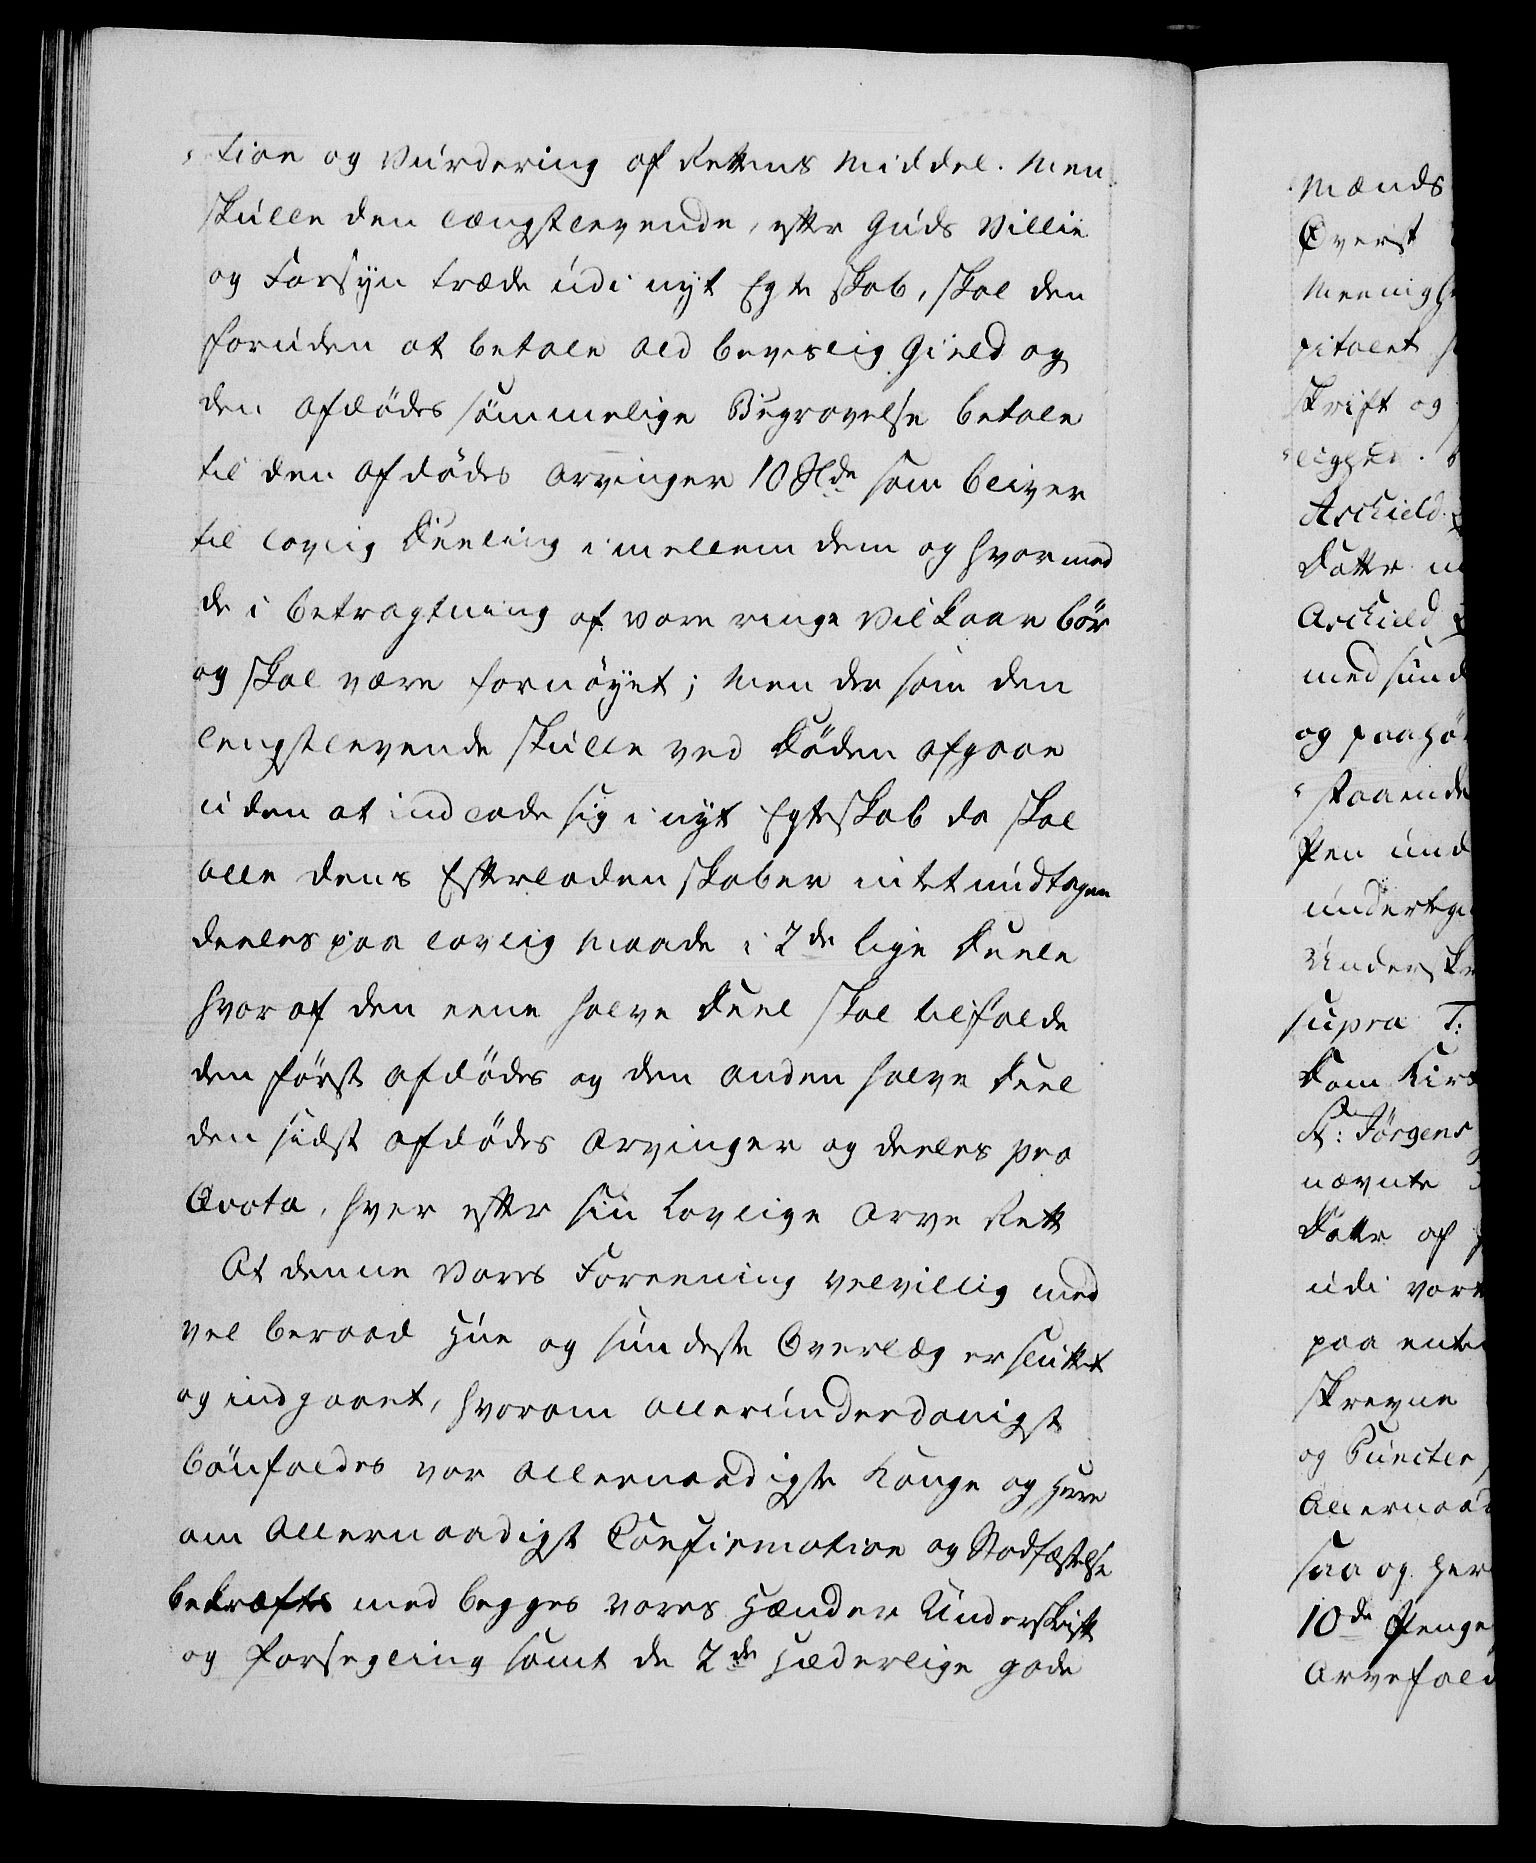 tion og Vurdering af Rettens Middel. Men
skulle den længstlevende, efter Guds Villie
og Forsyn træde udi nyt Egteskab, skal den
foruden at betale ald bevislig Gield og
den afdödes sömmelige Begravelse betale
til den afdödes Arvinger 10 Rde som bliver
til lovlig Deeling imellem dem og hvormed
de i betragtning af vore ringe Vilkaar bör
og skal være fornöyet; Men der som den
lengstlevende skulle ved Döden afgaae
uden at indlade sig i nyt Egteskab da skal
alle dens Efterladenskaber intet undtagen
deeles paa lovlig Maade i 2de lige Deele
hvoraf den eene halve Deel skal tilfalde
den först afdödes og den anden halve Deel
den sidst afdödes Arvinger og deeles pro
Qvota, hver efter sin Lovlige Arve Rett
At denne Vores Foreening velvillig med
vel beraad Hue og sundeste Overlæg er sluttet
og indgaaet, hvorom allerunderdanigst
bönfaldes vor allernaadigste Konge og Herre
om Allernaadigst Confirmation og Stadfæstelse
bekræftes med begges vores Hænder Underskrift
og Forsegling samt de 2de Hæderlige gode
Mænds
Överst
Meenigh
pitalet
skrift og
ligger.
Askield
Datter
Askield
med sund
og paahö
staaende
Pen und
underteg
Undersk
supra T:
Dom Kir
St: Jörgens
nævnte
Datter af
udi vort
paa ente
skrevne
og Puncter
Allernaad
saa og her
10de Penge
Arvefald